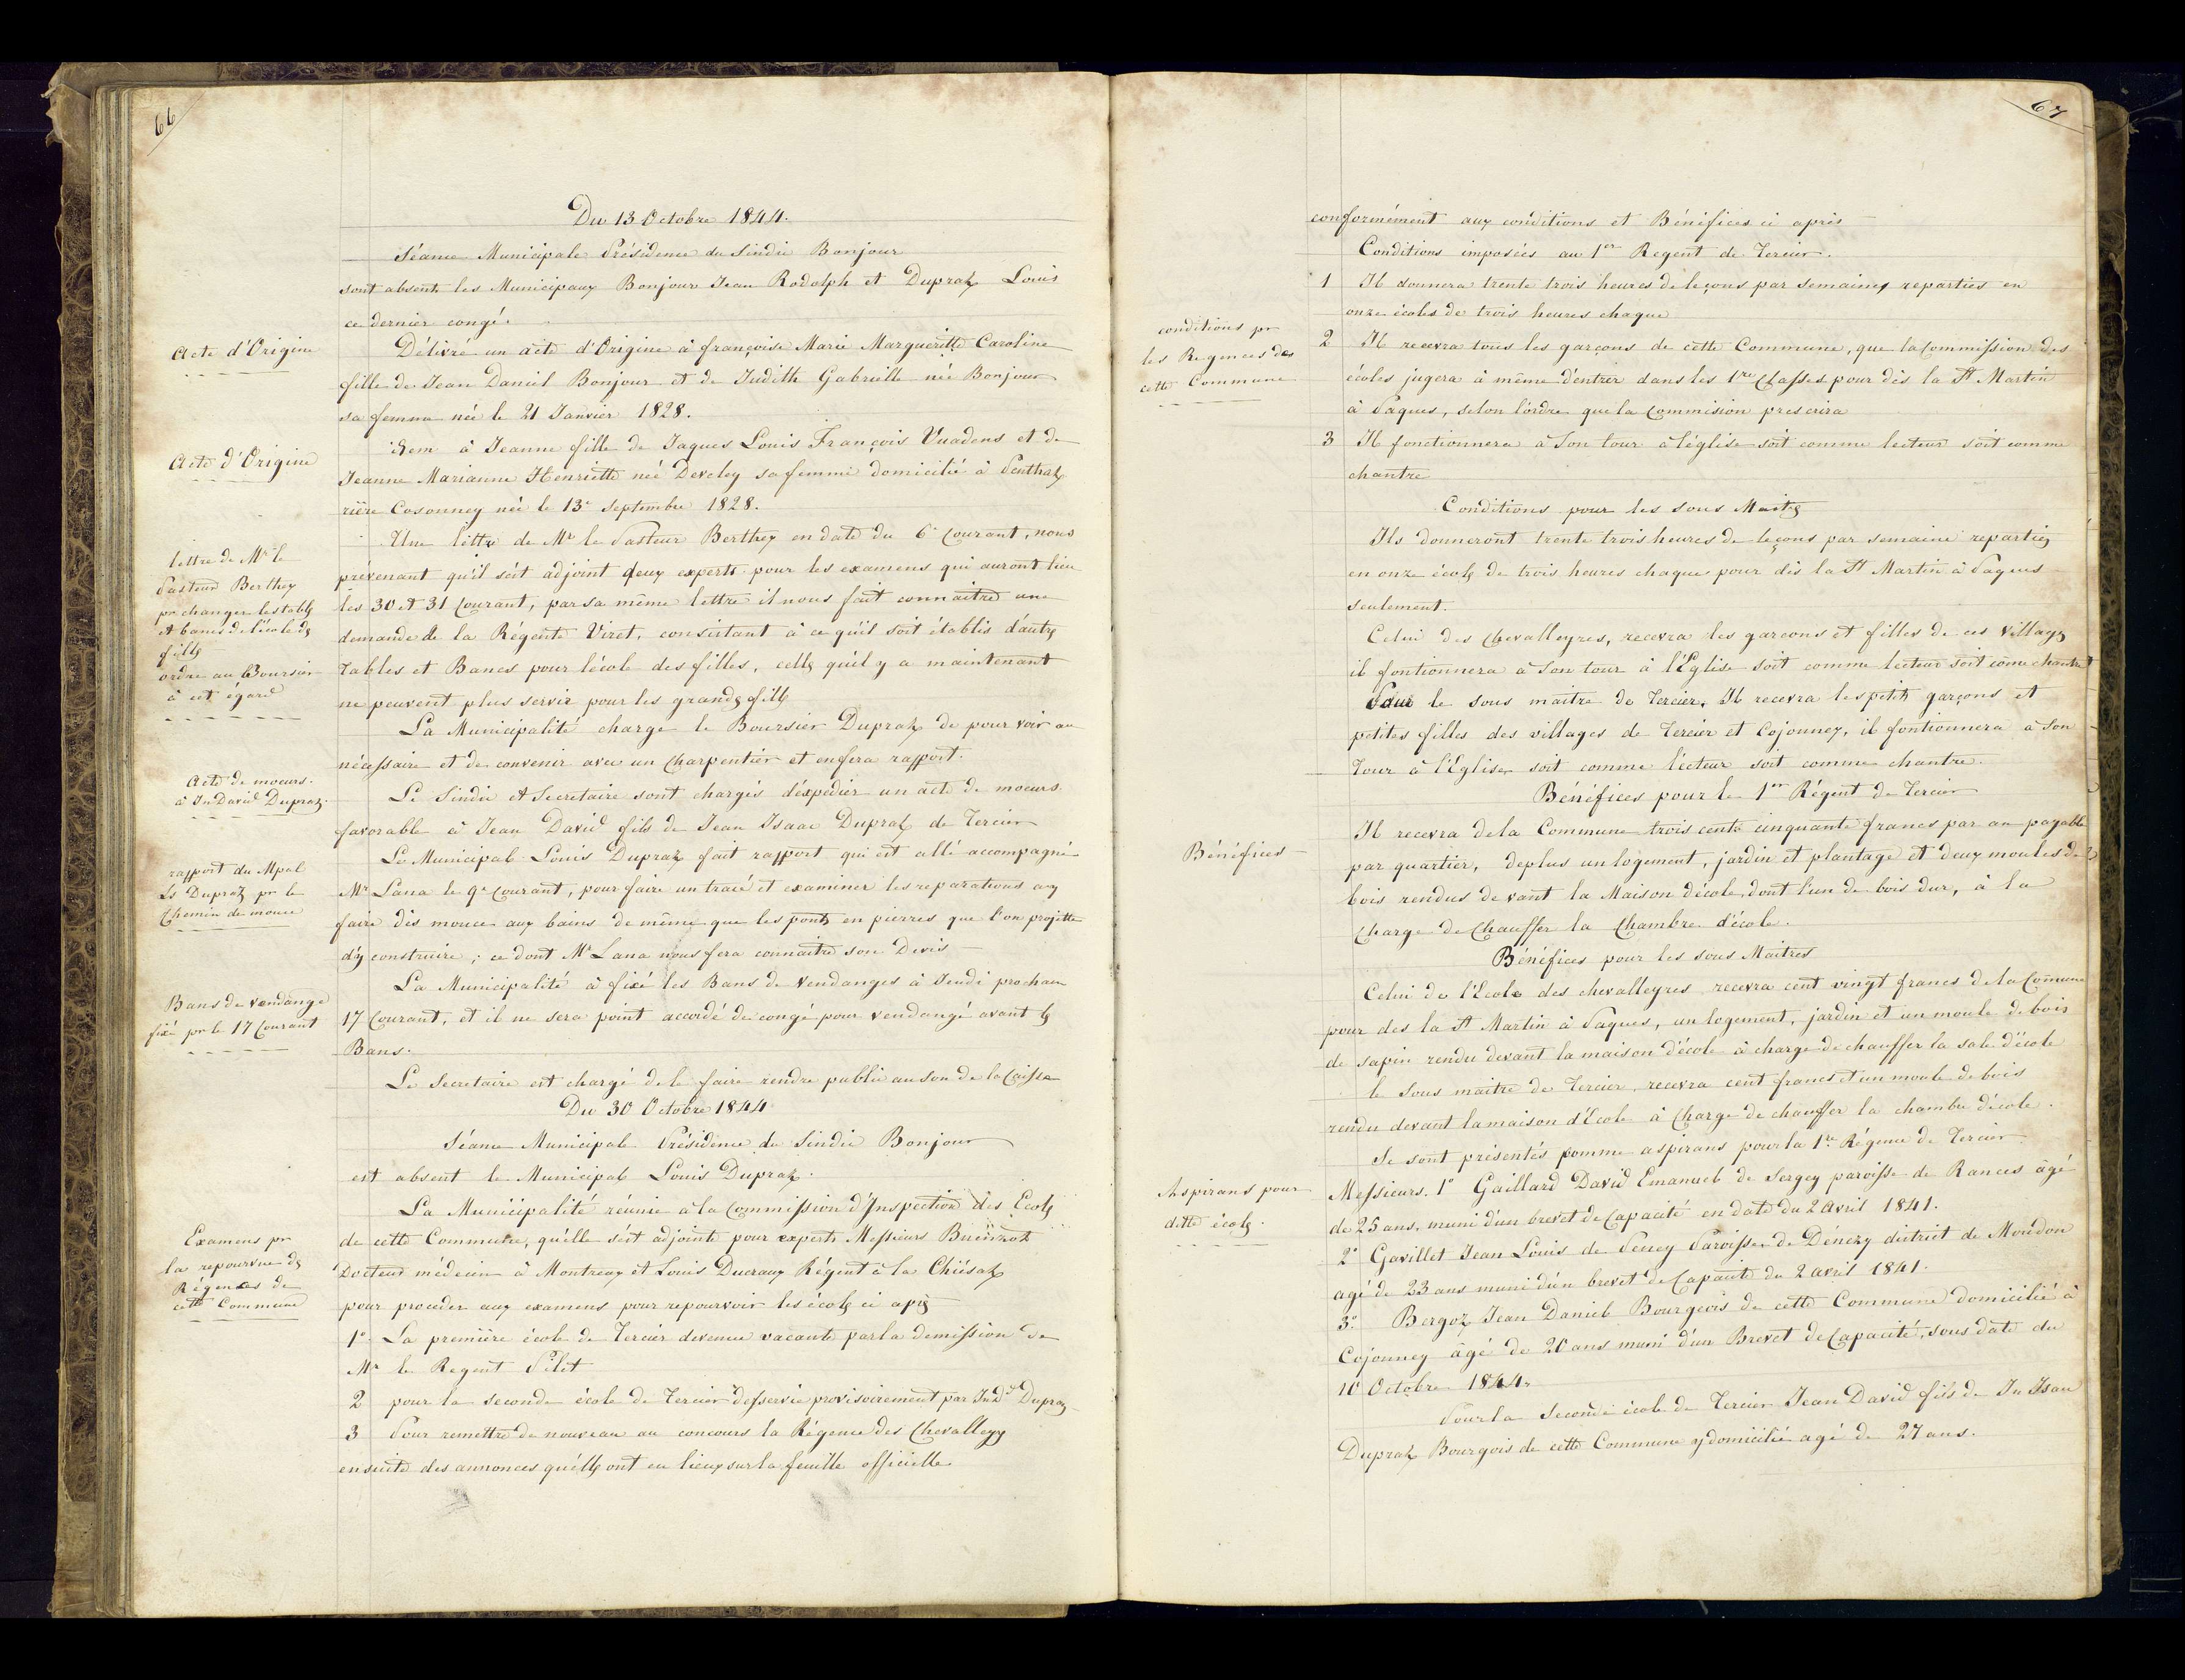 66
Du 13 Octobre 1844.
Séance Municipale Présidence du Sindic Bonjour
sont absents les Municipaux Bonjour Jean Rodolph et Dupraz Louis
ce dernier congé.
Acte d'Origine
Délivré un acte d'Origine à françoise Marie Margueritte Caroline
fille de Jean Daniel Bonjour et de Judith Gabrielle née Bonjour
sa femme née le 21 Janvier 1828.
Acte d'Origine
Item à Jeanne fille de Jaques Louis François Vuadens et de
Jeanne Marianne Henriette née Develey sa femme domicilié à Penthaz
rière Cosonney née le 13e Septembre 1828.
lettre de Mr le
Pasteur Berthey
pr changer les tables
et bancs de l'école ds
filles
ordre au Boursier
à cet égard
Une lettre de Mr le Pasteur Berthey en date du 6e Courant, nous
prévenant qu'il s'éit adjoint deux experts pour les examens qui auront lieu
les 30 et 31 Courant, par sa même lettre il nous fait connaitre une
demande de la Régente Viret, consistant à ce qu'il soit établis d'autres
Tables et Bancs pour l'école des filles, celles qu'il y a maintenant
ne peuvent plus servir pour les grandes filles
La Municipalité charge le Boursier Dupraz de pour voir au
nécessaire et de convenir avec un Charpentier et en fera rapport.
Acte de moeurs.
à Jn David Dupraz.
Le Sindic et Secretaire sont chargés d'éxpedier un acte de moeurs
favorable à Jean David fils de Jean Isaac Dupraz de Tercier
rapport du Mpal
Ls Dupraz pr le
Chemin de mouce
Le Municipal Louis Dupraz fait rapport qui est allé accompagné
Mr Lana le 9e Courant, pour faire un tracé et examiner les reparations a y
faire dès mouce aux bains de même que les ponts en pierres que l'on projette
d'y construire; ce dont Mr Lana nous fera connaitre son Devis
Bans de vendange
fixé pr le 17 Courant
La Municipalité à fixé les Bans de Vendanges à Jeudi prochain
17 Courant, et il ne sera point accordé de congé pour vendangé avant ls
Bans.
Le Secretaire est chargé de le faire rendre public au son de la Caisse
Du 30 Octobre 1844
Séance Municipale Présidence du Sindic Bonjour
est absent le Municipal Louis Dupraz.
Examens pr
la repourvue ds
Régences de
cette Commune
La Municipalité réunie à la Commission d'Inspection des Ecoles
de cette Commune, qu'élle s'éit adjointe pour experts Messieurs Buenzod
Docteur médecin à Montreux et Louis Ducraux Régent à la Chiésaz
pour proceder aux examens pour repourvoir les écoles ci après
1° La première école de Tercier devenue vacante par la demission de
Mr le Regent Pilet
2 pour la seconde école de Tercier desservie provisoirement par Jn Dd Dupraz
3 Pour remettre de nouveau au concours la Régence des Chevalleyres
ensuite des annonces qu'élles ont eu lieux sur la feuille officielle
67
conformément aux conditions et Bénéfices ci après
Conditions imposées au 1er Regent de Tercier.
conditions pr
les Regences des
cette Commune
1 Il donnera trente trois heures de leçons par semaines reparties en
onze écoles de trois heures chaque
2 Il recevra tous les garçons de cette Commune, que la Commission des
écoles jugera à même d'entrer dans les 1re Classes pour dès la St Martin
à Paques, selon l'ordre que la commision prescrira
3 Il fonctionnera à Son tour à l'église soit comme lecteur soit comme
chantre
Conditions pour les sous Maitres
Ils donneront trente trois heures de leçons par semaine reparties
en onze écoles de trois heures chaque pour dès la St Martin à Paques
seulement.
Celui des Chevalleyres, recevra les garcons et filles de ces villages
il fontionnera à Son tour à l'Eglise soit comme lecteur soit come chantre
Pour le sous maitre de Tercier, Il recevra les petits garçons et
petites filles des villages de Tercier et Cojonney, il fontionnera à Son
Tour à l'Eglise soit comme lecteur soit comme chantre.
Bénéfices pour le 1er Régent de Tercier
Bénéfices
Il recevra de la Commune trois cents cinquante francs par an payable
par quartier, de plus un logement, jardin et plantage et deux moules de
bois rendus devant la Maison d'école, dont l'un de bois dur, à la
Charge de Chauffer la Chambre d'école.
Bénéfices pour les sous Maitres
Celui de l'Ecole des chevalleyres recevra cent vingt francs de la Comune
pour des la St Martin à Paques, un logement, jardin et un moule de bois
de sapin rendu devant la maison d'école à charge de chauffer la sale d'école
le Sous maitre de Tercier, recevra cent francs et un moule de bois
rendu devant la maison d'Ecole à Charge de chauffer la chambre d'école.
Aspirans pour
dittes écoles.
Se sont présentés comme aspirans pour la 1re Régence de Tercier.
Messieurs. 1° Gaillard David Emanuel de Sergey paroisse de Rances âgé
de 25 ans, muni d'un brevet de Capacité en date du 2 avril 1841.
2° Gavillet Jean Louis de Peney Paroisse de Dénezy district de Moudon
agé de 23 ans muni d'un brevet de Capacité du 2 avril 1841.
3° Bergoz Jean Daniel Bourgeois de cette Commune domicilié à
Cojonney âgé de 20 ans muni d'un Brevet de Capacité, sous date du
10 Octobre 1844.
Pour la Seconde école de Tercier Jean David fils de Jn Isac
Dupraz Bourgois de cette Commune y domicilié agé de 27 ans.